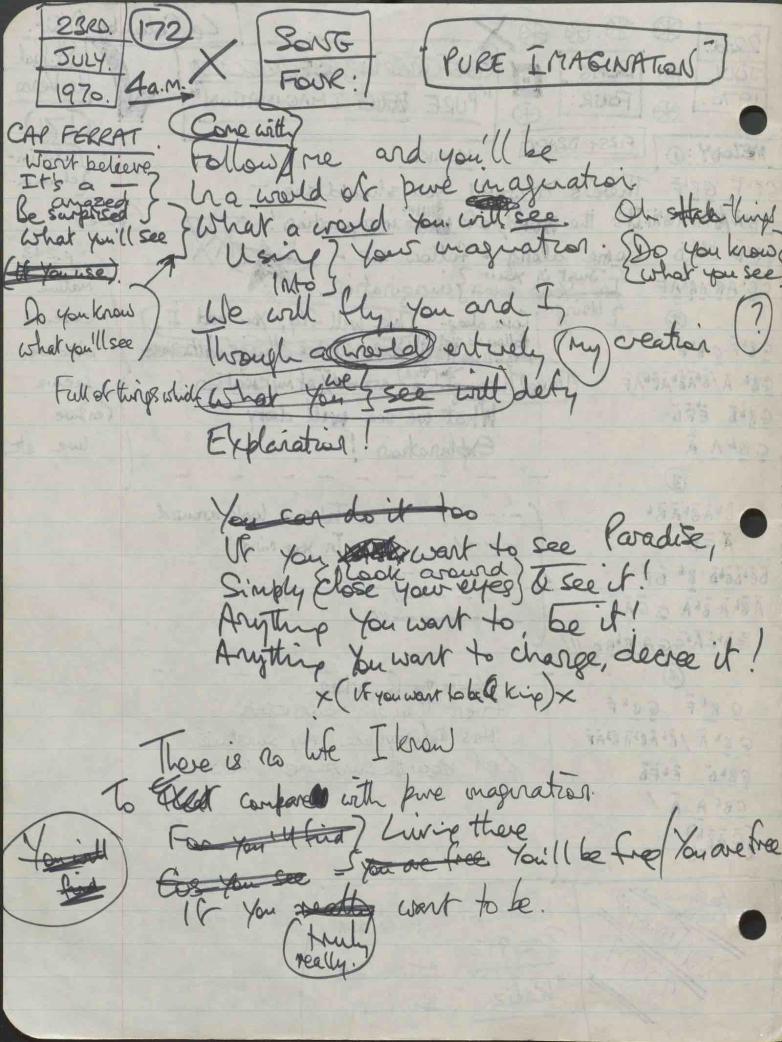 23RD. JULY. 1970.
172
4 a.m.
SONG FOUR:
"PURE IMAGINATION"
CAP FERRAT
Come with
Follow me and you'll be
In a world of pure imagination
What a world you will see. Oh
things
Using your imagination.
Into
Won't believe
It's a —
amazed
Be surprised
What you'll see
(If you use)
Do you know
what you'll see
Do you know
what you see
?
We will fly, you and I,
Through a world entirely my creation
Full of things which What you see will defy
we
Explanation!
You can do it too
If you want to see Paradise,
look around
Simply close your eyes & see it!
Anything you want to, be it!
Anything you want to change, decree it!
x (if you want to be a king) x
There is no life I know
To compare with pure imagination.
For you'll find Living there
Cos you see you are free You'll be free / You are free
You will find
If you really want to be.
truly
really.